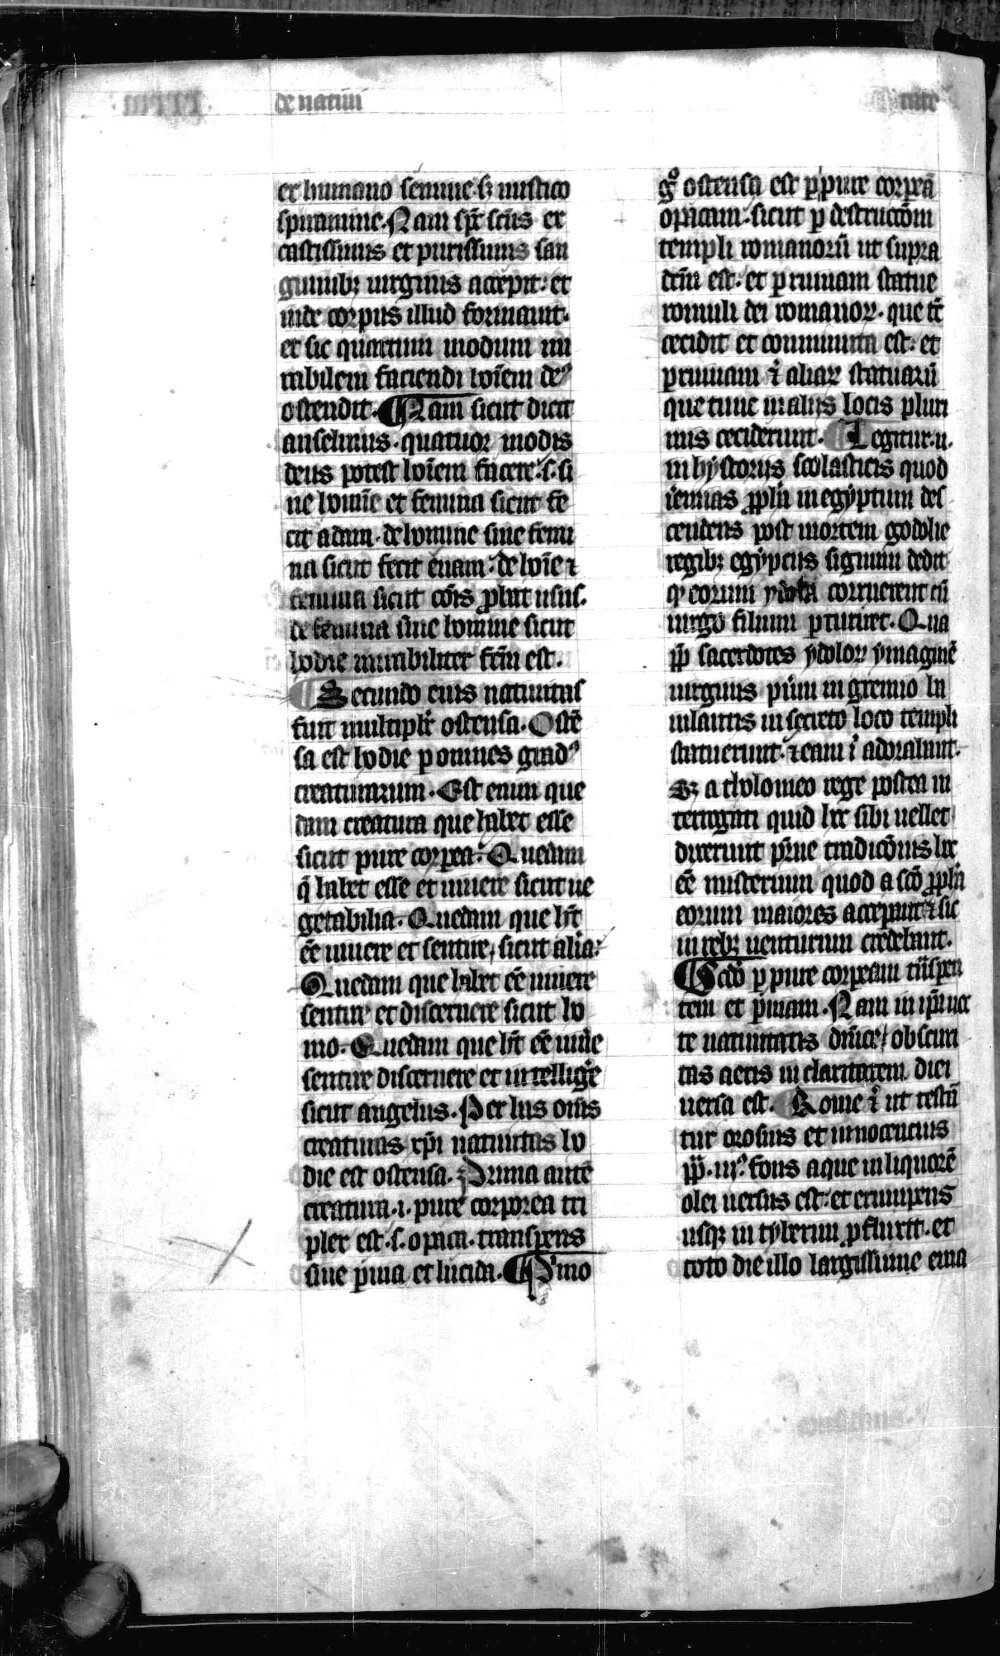 de natiui
tate
ex humano semine· sꝫ mistico
spiramine· Nam spūs scūs ex
castissimis et purissimis san
guinibꝫ uirginis accepit· et
inde corpus illud formauit·
et sic quartum modum mi
rabilem faciendi hoīem deꝰ
ostendit· Nam sicut dicit
anselmus· quatuor modis
deus potest hoīem facere· s· si
ne homīe et femina sicut fe
cit adam· de homine sine femi
na sicut fecit euam· de hoīe ⁊
femina sicut cōīs ꝓbat usus·
de femina sine homine sicut
hodie mirabiliter fc̄m est·
Secundo eius natiuitas
fuit multiplr̄ ostensa· Ostē
sa est hodie ꝑ omnes gradꝰ
creaturarum· Est enim que
dam creatura que habet esse
sicut pure corꝑea· Quedam
q̄ habet esse et uiuere sicut ue
getabilia· Quedam que hꝫ
eē uiuere et sentire, sicut alia·
Quedam que habet eē uiuere
sentire et discernere sicut ho
mo· Quedam que hꝫ eē uiuē
sentire discernere et intelligē
sicut angelus· Per has om̄s
creaturas xp̄i natiuitas ho
die est ostensa· Prima autē
creatura ·i· pure corporea tri
plex est· s· opaca· transpens
siue ꝑuia et lucida· Pͥmo
gͦ ostensa est ꝑ pure corꝑeā
opacam· sicut ꝑ destructōm
templi romanorū ut supra
dc̄m est· et ꝑ ruinam statue
romuli dei romanoꝝ· que tc̄
cecidit et comminuta est· et
ꝑ ruinam ⁊ aliaꝝ statuarū
que tunc in aliis locis pluri
mis ceciderunt· Legitur· n·
in hẏstoriis scolasticis quod
ieremias ꝓpha in egẏptum des
cendens post mortem godolie
regibꝫ egẏptiis signum dedit
ꝙ eorum ẏdola corruerent cū
uirgo filium ꝑturiret· Qua
ꝓp̄ sacerdotes ẏdoloꝝ ẏmaginē
uirginis pūm in gremio ba
iulantis in secreto loco templi
statuerunt· ⁊ eam ī adorabant·
Sꝫ a tholomeo rege postea in
terrogati quid hec sibi uellet
dixerunt pr̄ne tradicōnis hec
eē misterium quod a scō ꝓpha
eorum maiores acceperunt ⁊ sic
in rebꝫ uenturum credebant·
Scdō ꝑ pure corꝑeam tn̄spen
tem et ꝑuiam· Nam in ip̄a noc
te natiuitatis dn̄ice obscuri
tas aeris in claritatem diei
uersa est· Rome ⁊ ut testā
tur orosius et innocencius
pp̄· iijͦ· fons aque in liquorē
olei uersus est· et erumpens
usqꝫ in tẏberim ꝓfluxit· et
toto die illo largissime ema